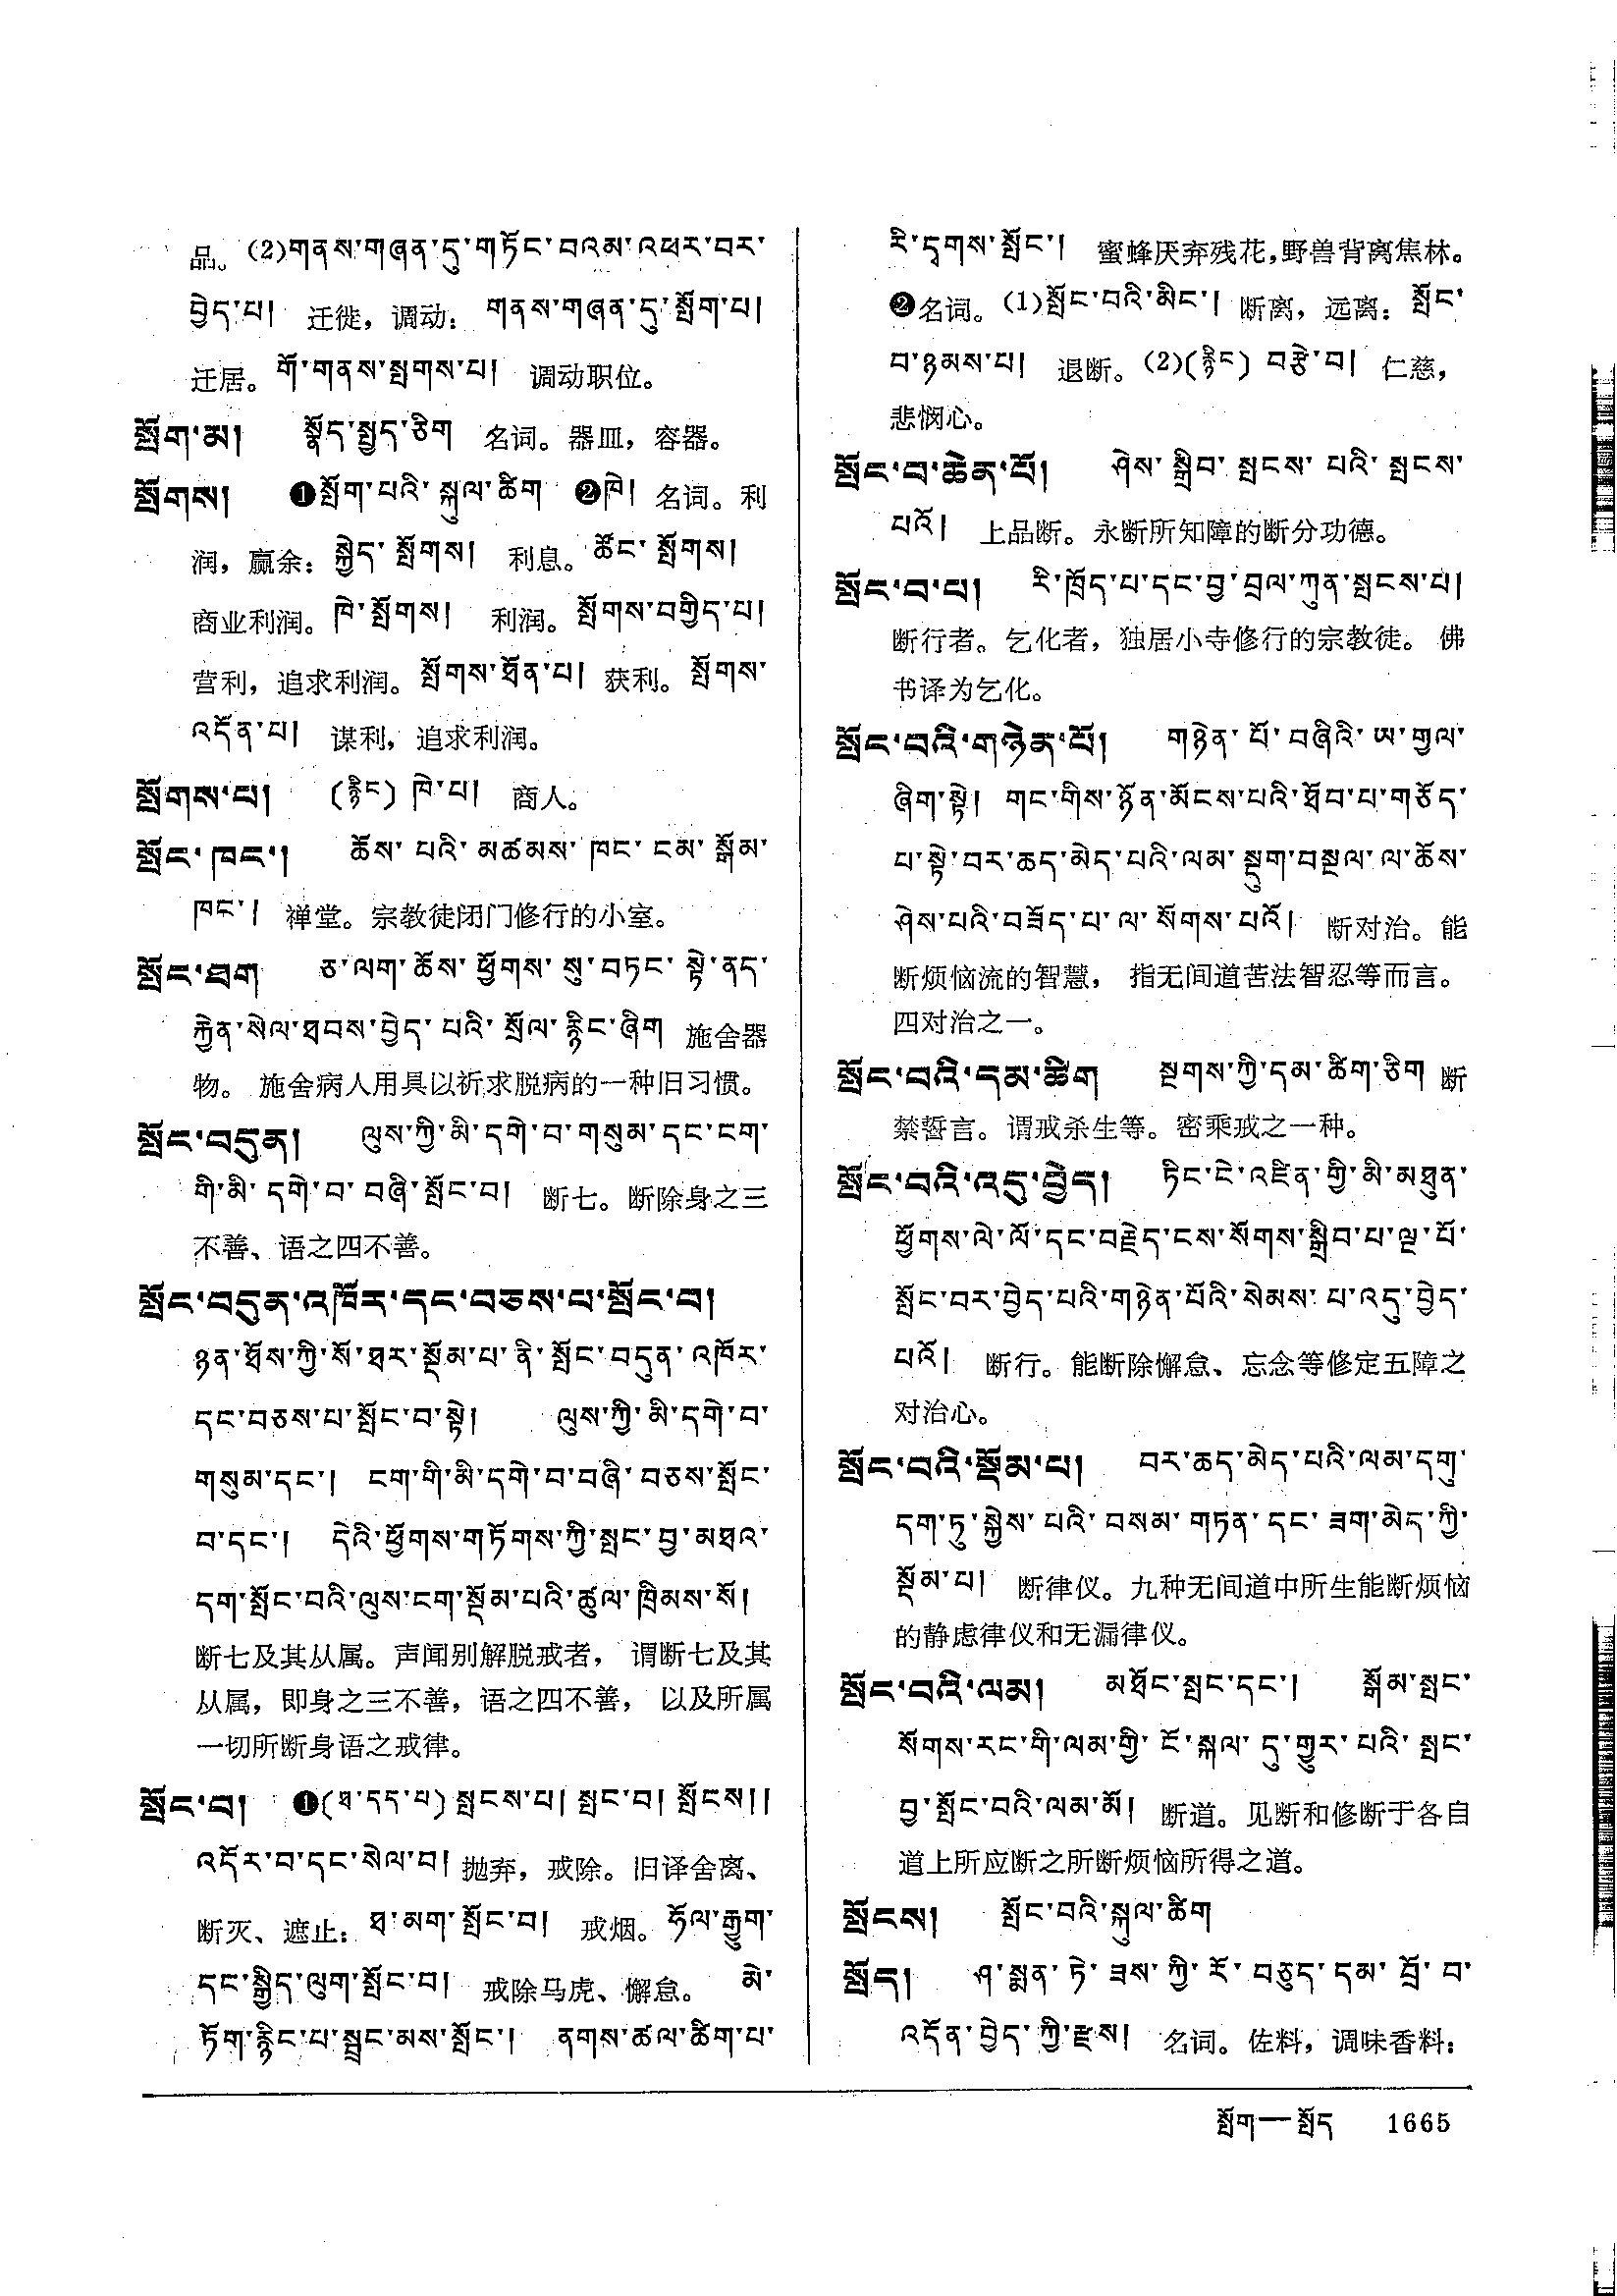 品。(2)གནས་གཞན་དུ་གཏོང་བའམ་འཕར་བར་
བྱེད་པ། 迁徙，调动：གནས་གཞན་དུ་སྤོག་པ།
迁居。གོ་གནས་སྤགས་པ། 调动职位。
སྤོག་མ། སྣོད་སྤྱད་ཅིག 名词。器皿，容器。
སྤོགས། ❶སྤོག་པའི་སྐུལ་ཚིག ❷ཁེ། 名词。利
润，赢余：སྐྱེད་སྤོགས། 利息。ཚོང་སྤོགས།
商业利润。ཁེ་སྤོགས། 利润。སྤོགས་བགྱིད་པ།
营利，追求利润。སྤོགས་ཐོན་པ། 获利。སྤོགས་
འདོན་པ། 谋利，追求利润。
སྤོགས་པ། (རྙིང) ཁེ་པ། 商人。
སྤོང་ཁང་། ཆོས་པའི་མཚམས་ཁང་ངམ་སྒོམ་
ཁང་། 禅堂。宗教徒闭门修行的小室。
སྤོང་ཐག ཅ་ལག་ཆོས་ཕྱོགས་སུ་བཏང་སྟེ་ནད་
རྐྱེན་སེལ་ཐབས་བྱེད་པའི་སྲོལ་རྙིང་ཞིག 施舍器
物。施舍病人用具以祈求脱病的一种旧习惯。
སྤོང་བདུན། ལུས་ཀྱི་མི་དགེ་བ་གསུམ་དང་ངག་
གི་མི་དགེ་བ་བཞི་སྤོང་བ། 断七。断除身之三
不善、语之四不善。
སྤོང་བདུན་འཁོར་དང་བཅས་པ་སྤོང་བ།
ཉན་ཐོས་ཀྱི་སོ་ཐར་སྡོམ་པ་ནི་སྤོང་བདུན་འཁོར་
དང་བཅས་པ་སྤོང་བ་སྟེ། ལུས་ཀྱི་མི་དགེ་བ་
གསུམ་དང་། ངག་གི་མི་དགེ་བ་བཞི་བཅས་སྤོང་
བ་དང་། དེའི་ཕྱོགས་གཏོགས་ཀྱི་སྤང་བྱ་མཐའ་
དག་སྤོང་བའི་ལུས་ངག་སྡོམ་པའི་ཚུལ་ཁྲིམས་སོ།
断七及其从属。声闻别解脱戒者，谓断七及其
从属，即身之三不善，语之四不善，以及所属
一切所断身语之戒律。
སྤོང་བ། ❶(ཐ་དད་པ) སྤངས་པ། སྤང་བ། སྤོངས།།
འདོར་བ་དང་སེལ་བ། 抛弃，戒除。旧译舍离、
断灭、遮止：ཐ་མག་སྤོང་བ། 戒烟。ཧོལ་རྒྱུག་
དང་སྒྱིད་ལུག་སྤོང་བ། 戒除马虎、懈怠。མེ་
ཏོག་རྙིང་པ་སྦྲང་མས་སྤོང་། ནགས་ཚལ་ཚིག་པ་
རི་དྭགས་སྤོང་། 蜜蜂厌弃残花，野兽背离焦林。
❷名词。(1)སྤོང་བའི་མིང་། 断离，远离：སྤོང་
བ་ཉམས་པ། 退断。(2)(རྙིང) བརྩེ་བ། 仁慈，
悲悯心。
སྤོང་བ་ཆེན་པོ། ཤེས་སྒྲིབ་སྤངས་པའི་སྤངས་
པའོ། 上品断。永断所知障的断分功德。
སྤོང་བ་པ། རི་ཁྲོད་པ་དང་བྱ་བྲལ་ཀུན་སྤངས་པ།
断行者。乞化者，独居小寺修行的宗教徒。佛
书译为乞化。
སྤོང་བའི་གཉེན་པོ། གཉེན་པོ་བཞིའི་ཨ་གྱལ་
ཞིག་སྟེ། གང་གིས་ཉོན་མོངས་པའི་ཐོབ་པ་གཅོད་
པ་སྟེ་བར་ཆད་མེད་པའི་ལམ་སྡུག་བསྔལ་ལ་ཆོས་
ཤེས་པའི་བཟོད་པ་ལ་སོགས་པའོ། 断对治。能
断烦恼流的智慧，指无间道苦法智忍等而言。
四对治之一。
སྤོང་བའི་དམ་ཚིག སྔགས་ཀྱི་དམ་ཚིག་ཅིག 断
禁誓言。谓戒杀生等。密乘戒之一种。
སྤོང་བའི་འདུ་བྱེད། ཏིང་ངེ་འཛིན་གྱི་མི་མཐུན་
ཕྱོགས་ལེ་ལོ་དང་བརྗེད་ངས་སོགས་སྒྲིབ་པ་ལྔ་པོ་
སྤོང་བར་བྱེད་པའི་གཉེན་པོའི་སེམས་པ་འདུ་བྱེད་
པའོ། 断行。能断除懈怠、忘念等修定五障之
对治心。
སྤོང་བའི་སྡོམ་པ། བར་ཆད་མེད་པའི་ལམ་དགུ་
དག་ཏུ་སྐྱེས་པའི་བསམ་གཏན་དང་ཟག་མེད་ཀྱི་
སྡོམ་པ། 断律仪。九种无间道中所生能断烦恼
的静虑律仪和无漏律仪。
སྤོང་བའི་ལམ། མཐོང་སྤང་དང་། སྒོམ་སྤང་
སོགས་རང་གི་ལམ་གྱི་ངོ་སྐལ་དུ་གྱུར་པའི་སྤང་
བྱ་སྤོང་བའི་ལམ་མོ། 断道。见断和修断于各自
道上所应断之所断烦恼所得之道。
སྤོངས། སྤོང་བའི་སྐུལ་ཚིག
སྤོད། ཤ་སྨན་ཏེ་ཟས་ཀྱི་རོ་བཅུད་དམ་བྲོ་བ་
འདོན་བྱེད་ཀྱི་རྫས། 名词。佐料，调味香料：
སྤོག—སྤོད 1665